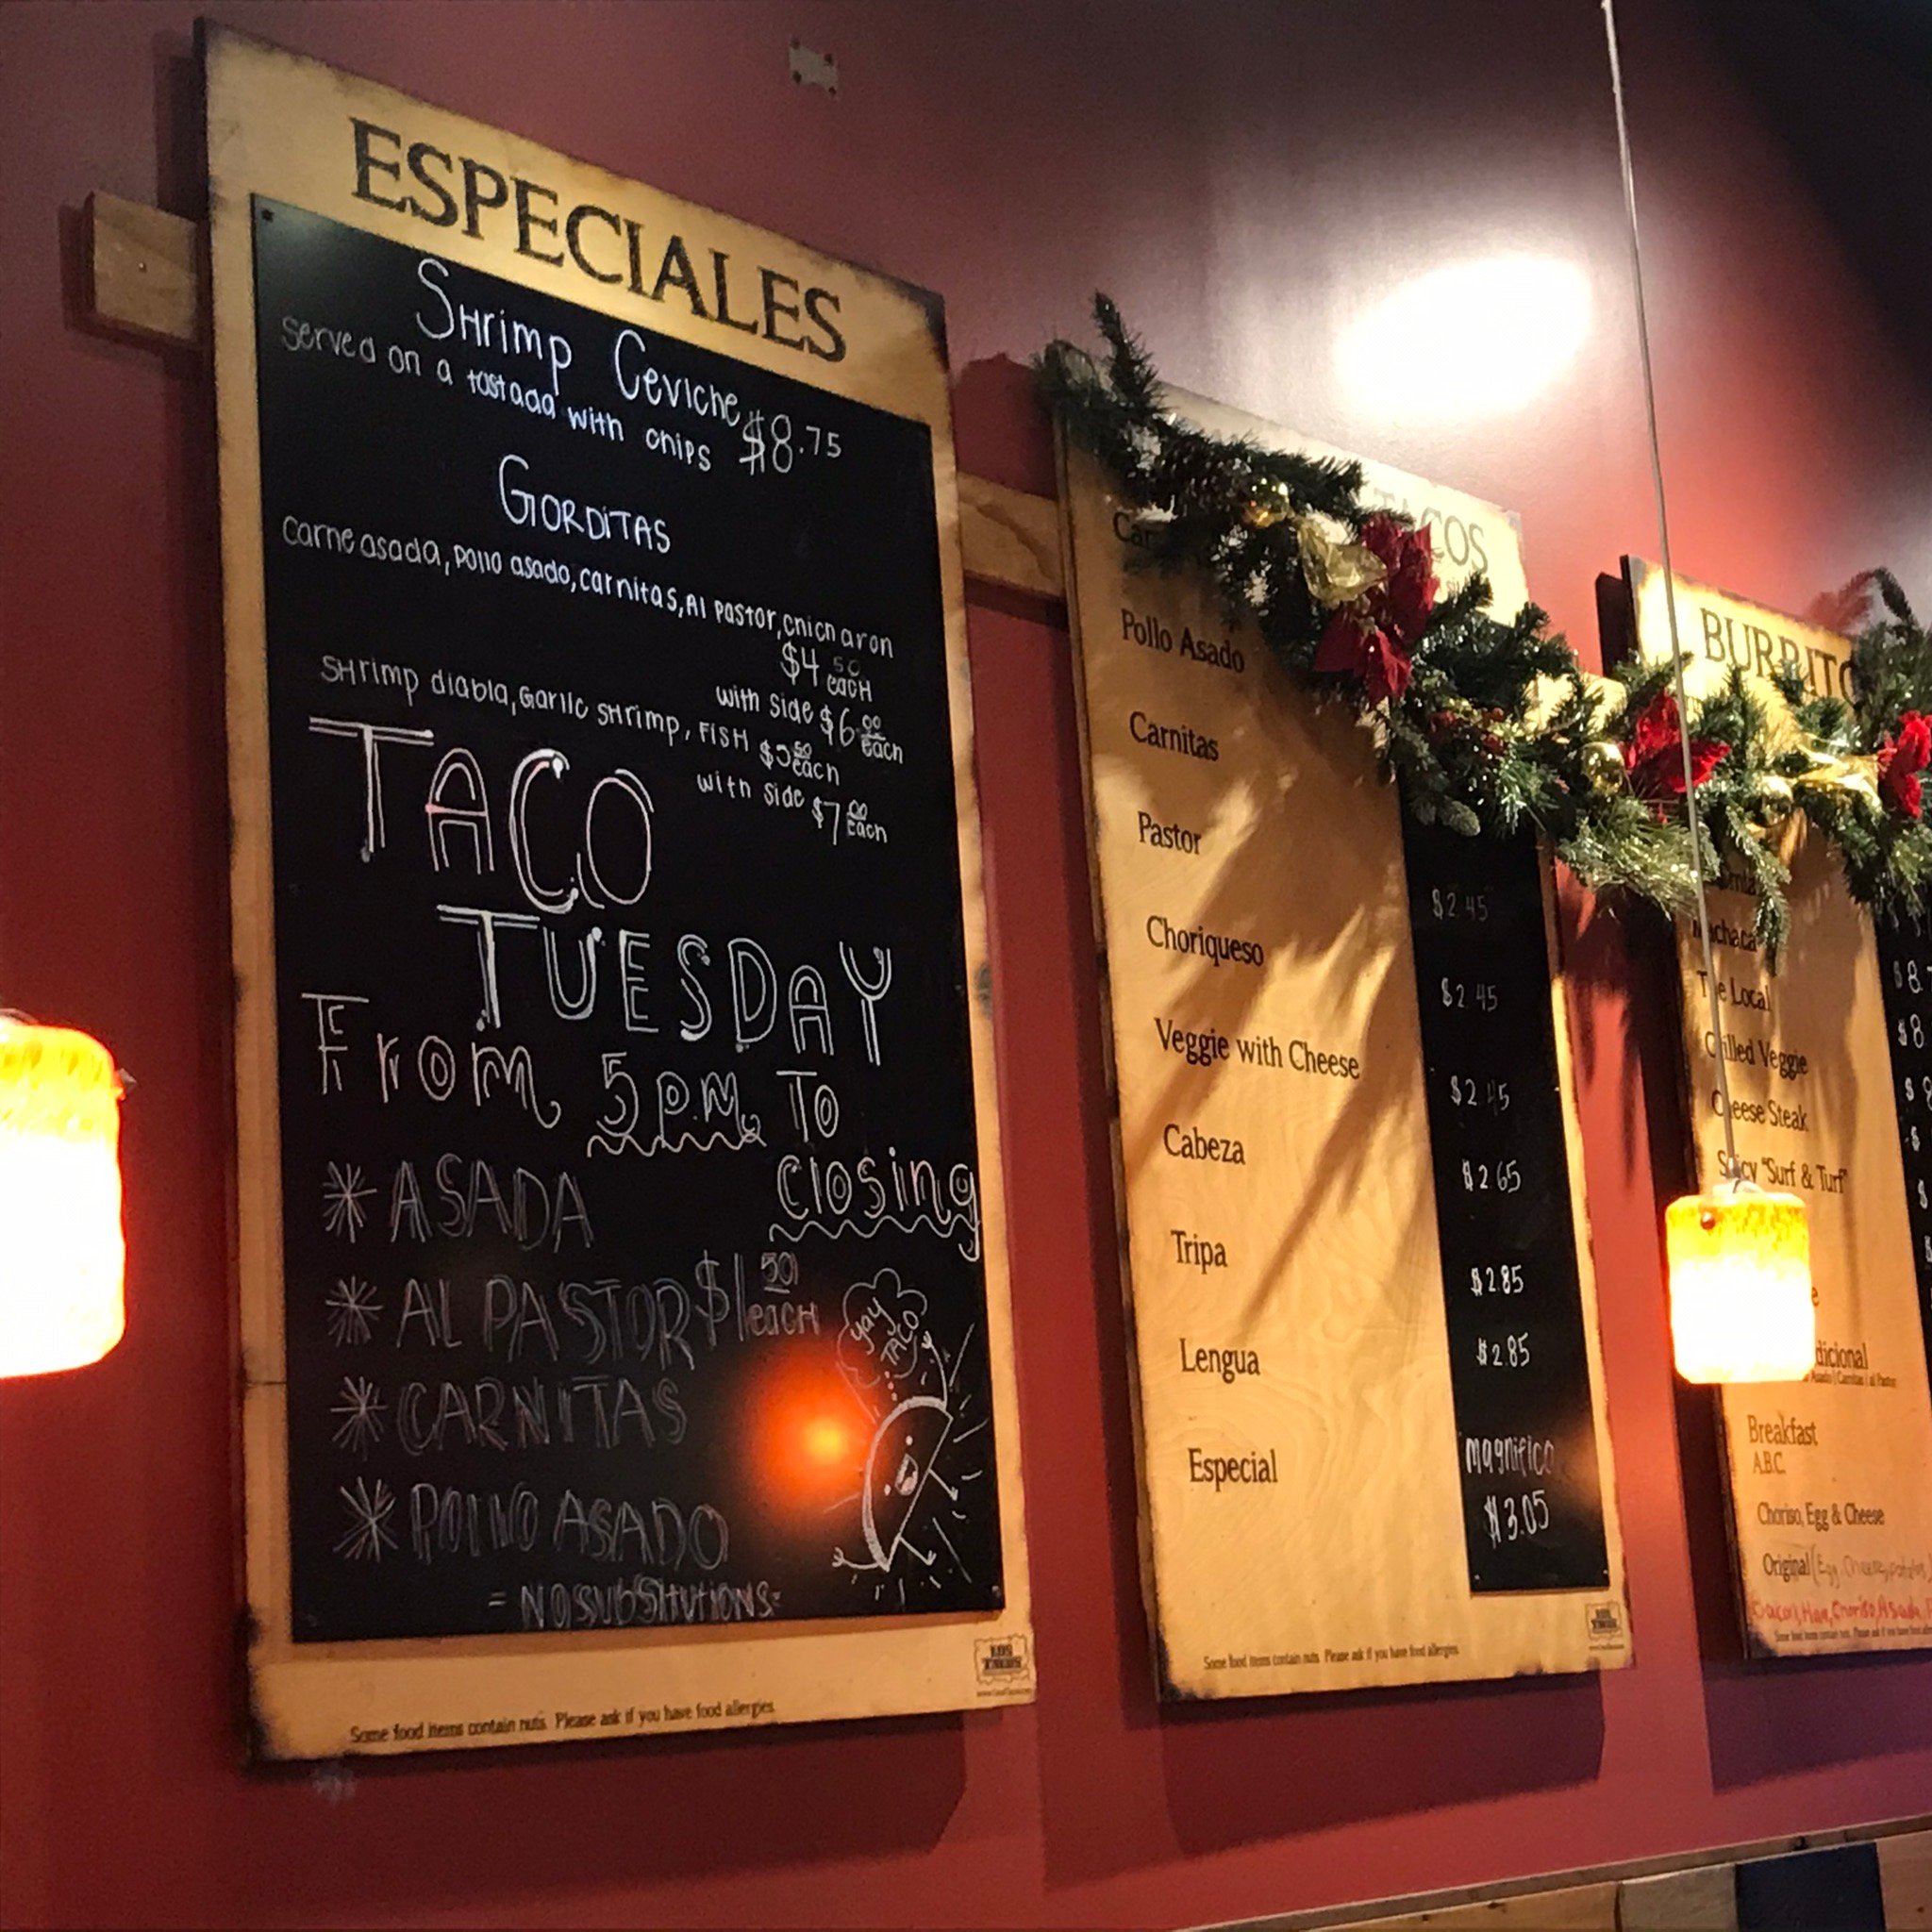 ESPECIALES
SHrimp Ceviche
served on a tostada with chips $8.75
GORDITAS
carne asada, pollo asado, carnitas, Al pastor, chicharon
$4.50 each
with side $6.00 each
SHrimp diabla, Garlic SHrimp, FISH $5.50 each
with side $7.00 each
TACO
TUESDAY
From 5 P.M. TO
closing
* ASADA
* AL PASTOR $1.50 each
* CARNITAS
* POLLO ASADO
= NO SUBSTITUTIONS =
yay
TACO
Some food items contain nuts. Please ask if you have food allergies.
TACOS
Pollo Asado
Carnitas
Pastor
Choriqueso $2.45
Veggie with Cheese $2.45
Cabeza $2.45
Tripa $2.65
Lengua $2.85
$2.85
Especial magnifico
$3.05
Some food items contain nuts. Please ask if you have food allergies.
LOS TACOS
BURRITO
Machaca
The Local
Grilled Veggie
Cheese Steak
Spicy "Surf & Turf"
Breakfast
A.B.C.
Choriso, Egg & Cheese
Original (Egg, Cheese, potatos
Bacon, Ham, Choriso, Asada